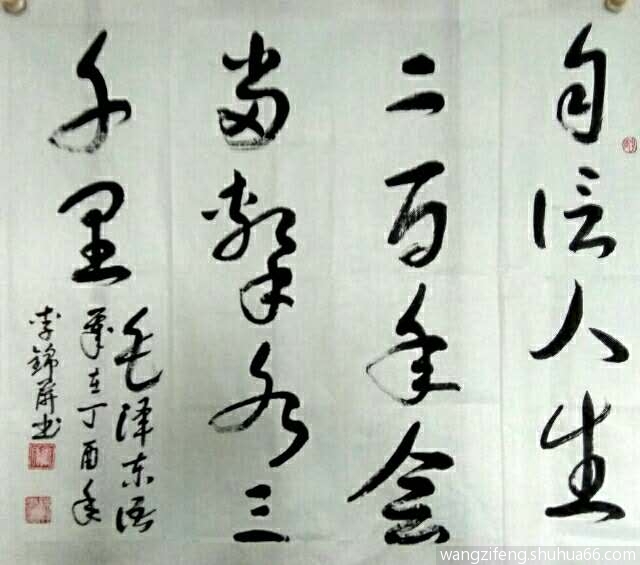 自信人生
二百年会
当擊水三
千里
毛泽东语
岁在丁酉年
李錦屏书
wangzifeng.shuhua66.com